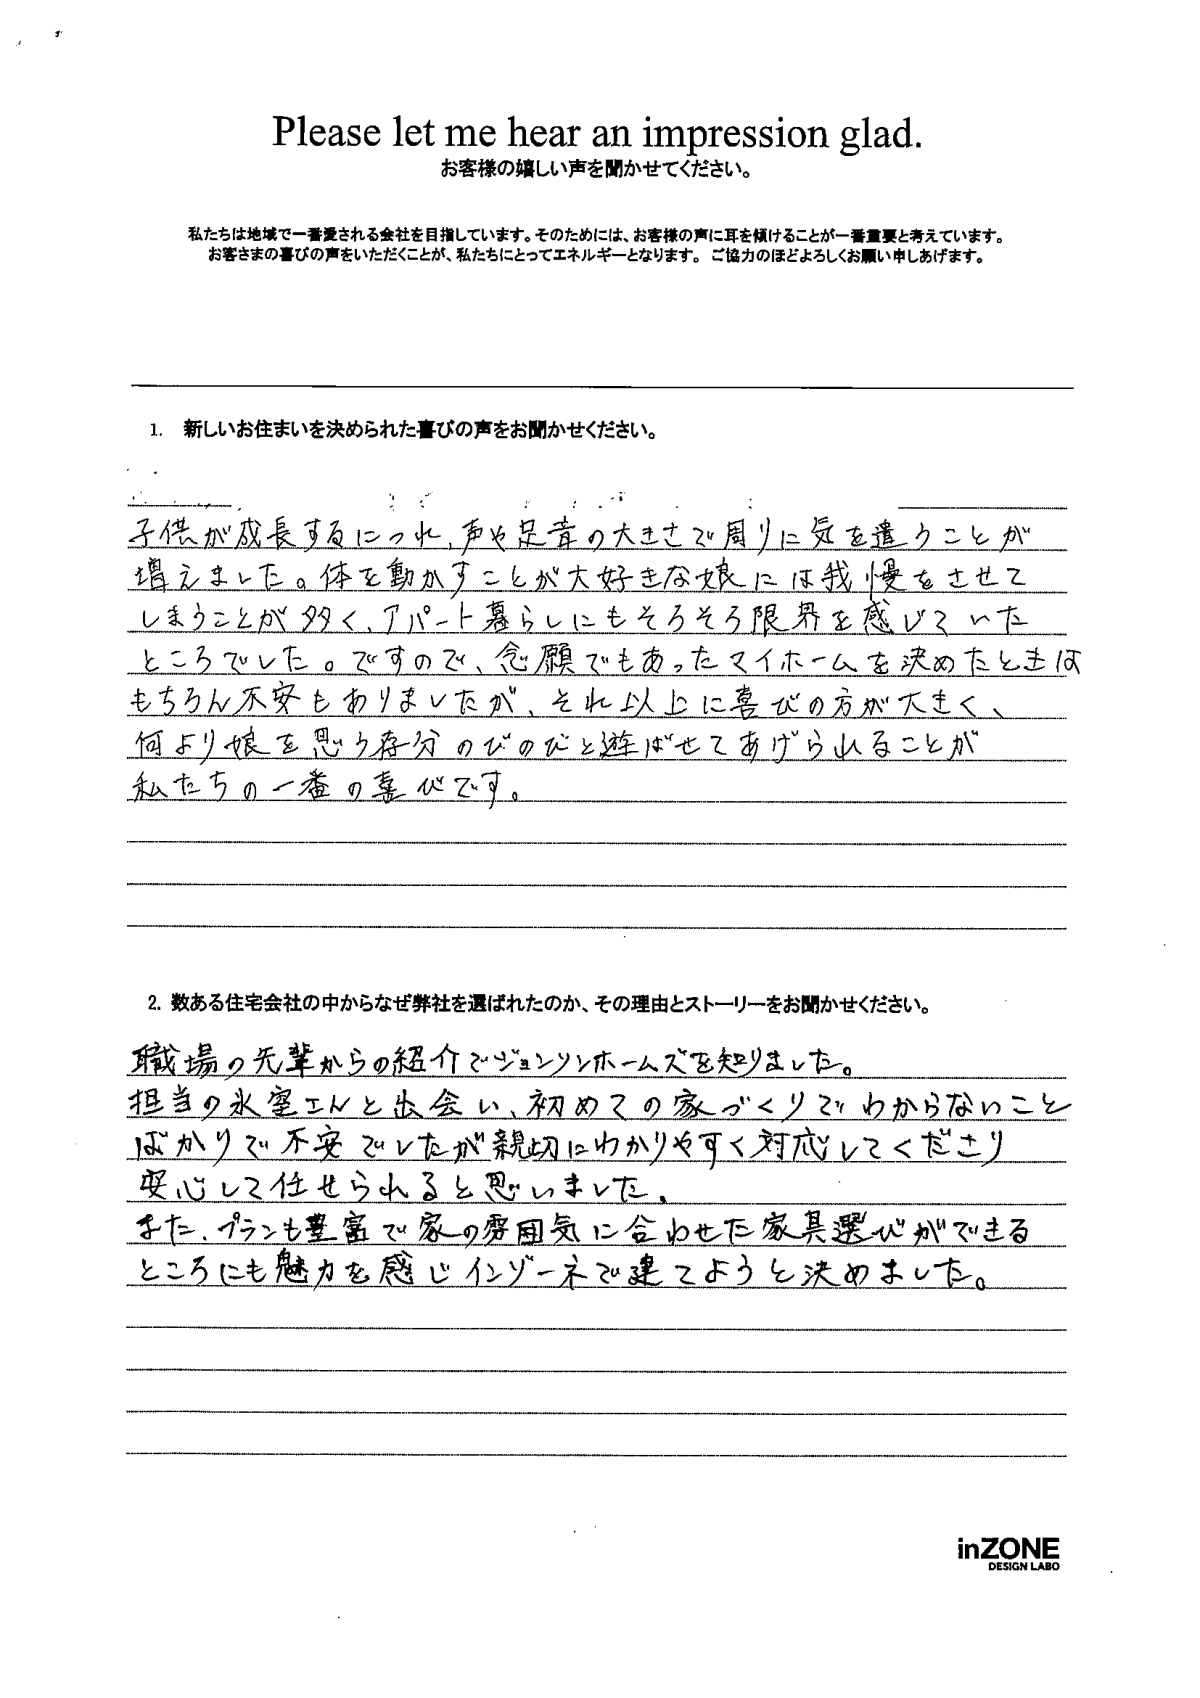 Please let me hear an impression glad.
お客様の嬉しい声を聞かせてください。
私たちは地域で一番愛される会社を目指しています。そのためには、お客様の声に耳を傾けることが一番重要と考えています。
お客さまの喜びの声をいただくことが、私たちにとってエネルギーとなります。ご協力のほどよろしくお願い申しあげます。
1. 新しいお住まいを決められた喜びの声をお聞かせください。
子供が成長するにつれ、声や足音の大きさで周りに気を遣うことが
増えました。体を動かすことが大好きな娘には我慢をさせて
しまうことが多く、アパート暮らしにもそろそろ限界を感じていた
ところでした。ですので、念願でもあったマイホームを決めたときは
もちろん不安もありましたが、それ以上に喜びの方が大きく、
何より娘を思う存分のびのびと遊ばせてあげられることが
私たちの一番の喜びです。
2. 数ある住宅会社の中からなぜ弊社を選ばれたのか、その理由とストーリーをお聞かせください。
職場の先輩からの紹介でジョンソンホームズを知りました。
担当の氷室さんと出会い、初めての家づくりでわからないこと
ばかりで不安でしたが親切にわかりやすく対応してくださり
安心して任せられると思いました。
また、プランも豊富で家の雰囲気に合わせた家具選びができる
ところにも魅力を感じインゾーネで建てようと決めました。
inZONE
DESIGN LABO